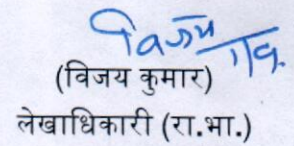 विजय
(विजय कुमार)
लेखाधिकारी (रा.भा.)